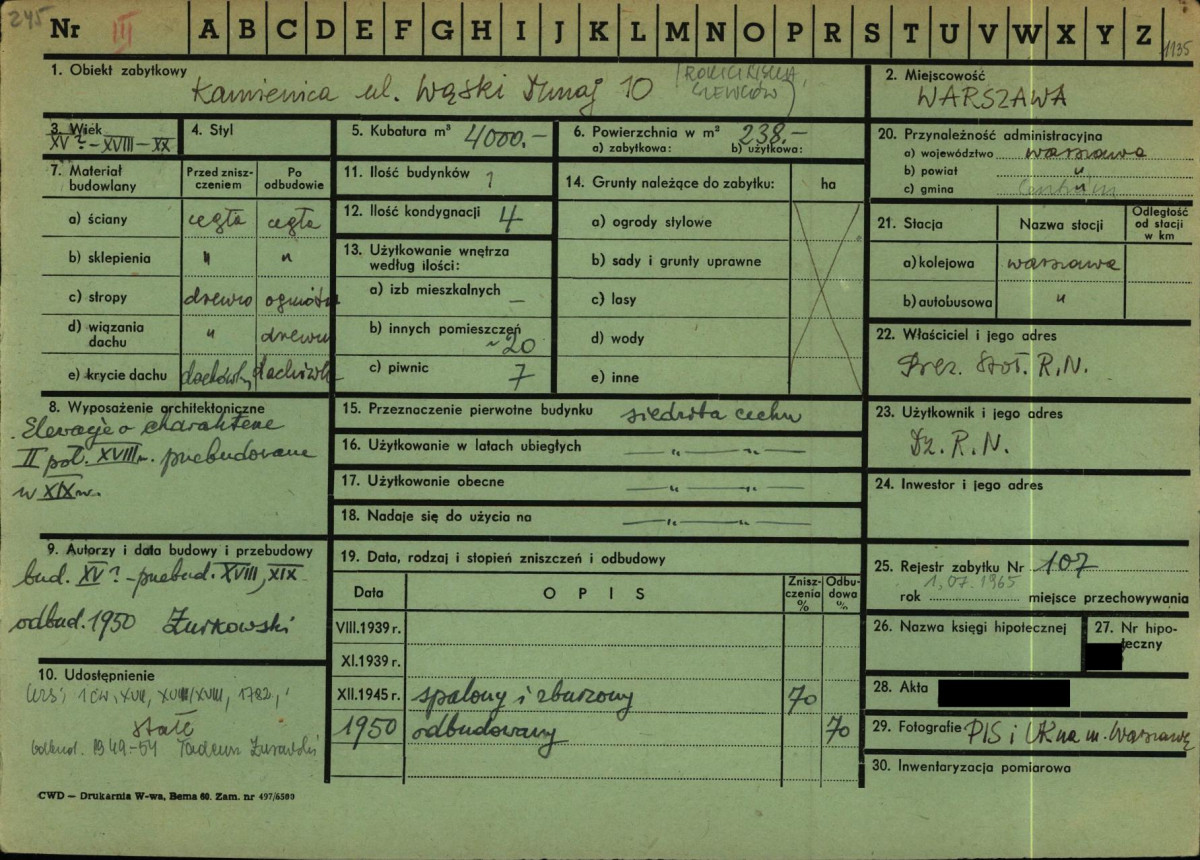 245
Nr III A B C D E F G H I J K L M N O P R S T U V W X Y Z 1135
1. Obiekt zabytkowy
Kamienica ul. Wąski Dunaj 10
SZEWCÓW)
2. Miejscowość
WARSZAWA
3. Wiek
XV? – XVIII – XX
4. Styl
5. Kubatura m³ 4000.–
6. Powierzchnia w m² 238.–
a) zabytkowa: b) użytkowa:
20. Przynależność administracyjna
a) województwo warszawa
b) powiat "
c) gmina Centrum
7. Materiał budowlany
Przed zniszczeniem
Po odbudowie
a) ściany cegła cegła
b) sklepienia " "
c) stropy drewno
d) wiązania dachu " drewn
e) krycie dachu
8. Wyposażenie architektoniczne
Elewacje o charakterze
II poł. XVIII w. przebudowane
w XIX w.
9. Autorzy i data budowy i przebudowy
bud. XV? – przebud. XVIII, XIX
odbud. 1950 Żurkowski
10. Udostępnienie
1 ćw. XVII, XVII/XVIII, 1782,
stałe
odbud. 1949-54 Tadeusz Żurawski
11. Ilość budynków 1
12. Ilość kondygnacji 4
13. Użytkowanie wnętrza według ilości:
a) izb mieszkalnych –
b) innych pomieszczeń ~20
c) piwnic 7
14. Grunty należące do zabytku: ha
a) ogrody stylowe
b) sady i grunty uprawne
c) lasy
d) wody
e) inne
15. Przeznaczenie pierwotne budynku siedziba cechu
16. Użytkowanie w latach ubiegłych – " – " –
17. Użytkowanie obecne – " – " –
18. Nadaje się do użycia na – " – " –
19. Data, rodzaj i stopień zniszczeń i odbudowy
Data OPIS Zniszczenia % Odbudowa %
VIII.1939 r.
XI.1939 r.
XII.1945 r. spalony i zburzony 70
1950 odbudowany 70
21. Stacja Nazwa stacji Odległość od stacji w km
a) kolejowa warszawa
b) autobusowa "
22. Właściciel i jego adres
Prez. Stoł. R.N.
23. Użytkownik i jego adres
Dz. R.N.
24. Inwestor i jego adres
25. Rejestr zabytku Nr 107
1.07.1965
rok miejsce przechowywania
26. Nazwa księgi hipotecznej
27. Nr hipoteczny
28. Akta
29. Fotografie PIS i UK na m. Warszawę
30. Inwentaryzacja pomiarowa
CWD — Drukarnia W-wa, Bema 60. Zam. nr 497/6500